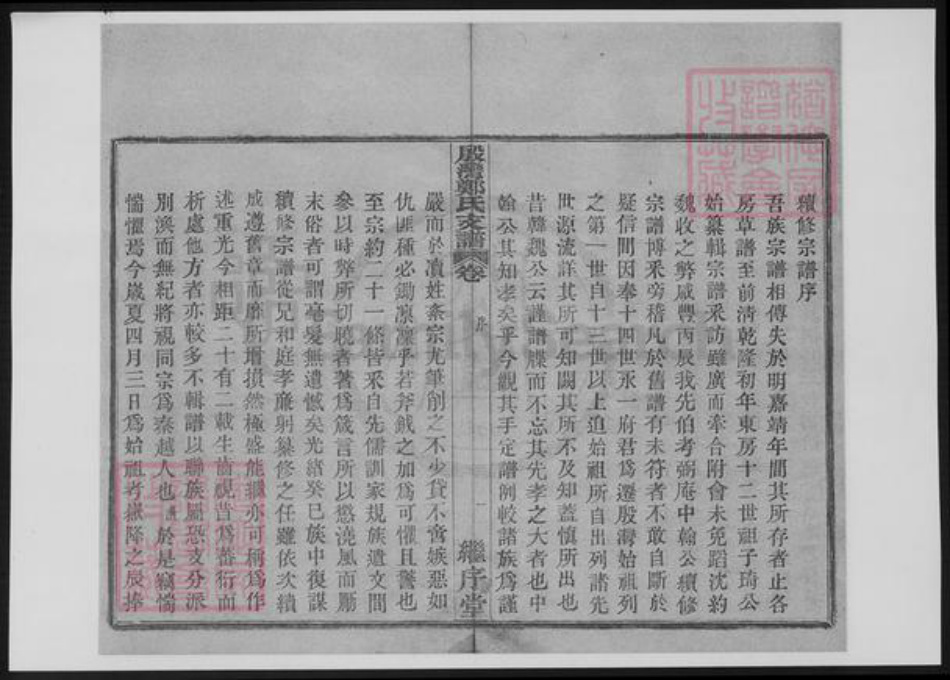 續修宗譜序
吾族宗譜相傳失於明嘉靖年間其所存者止各
房草譜至前清乾隆初年東房十二世祖子琦公
始纂輯宗譜釆訪雖廣而牽合附會未免蹈沈約
魏收之弊咸豐丙辰我先伯考弼庵中翰公續修
宗譜博釆旁稽凡於舊譜有未符者不敢自斷於
疑信間因奉十四世永一府君爲遷殷灣始祖列
之第一世自十三世以上迨始祖所自出列諸先
世源流詳其所可知闕其所不及知蓋慎所出也
昔韓魏公云謹譜牒而不忘其先孝之大者也中
翰公其知孝矣乎今觀其手定譜例較諸族爲謹
殷灣鄭氏支譜 卷 序 一 繼序堂
嚴而於瀆姓紊宗尤筆削之不少貸不啻嫉惡如
仇匪種必鋤凛凛乎若斧鉞之加爲可懼且警也
至宗約二十一條皆釆自先儒訓家規族遺文間
參以時弊所切曉者著爲箴言所以懲澆風而勵
末俗者可謂毫髮無遺憾矣光緒癸巳族中復謀
續修宗譜從兄和庭孝廉躬纂修之任雖依次續
成遵舊章而靡所增損然極盛能繼亦可稱爲作
述重光今相距二十有二載生齒視昔爲蕃衍而
析處他方者亦較多不輯譜以聯族屬恐支分派
別渙而無紀將視同宗爲秦越人也 於是竊惴
惴懼焉今歲夏四月三日爲始祖考嶽降之辰捧